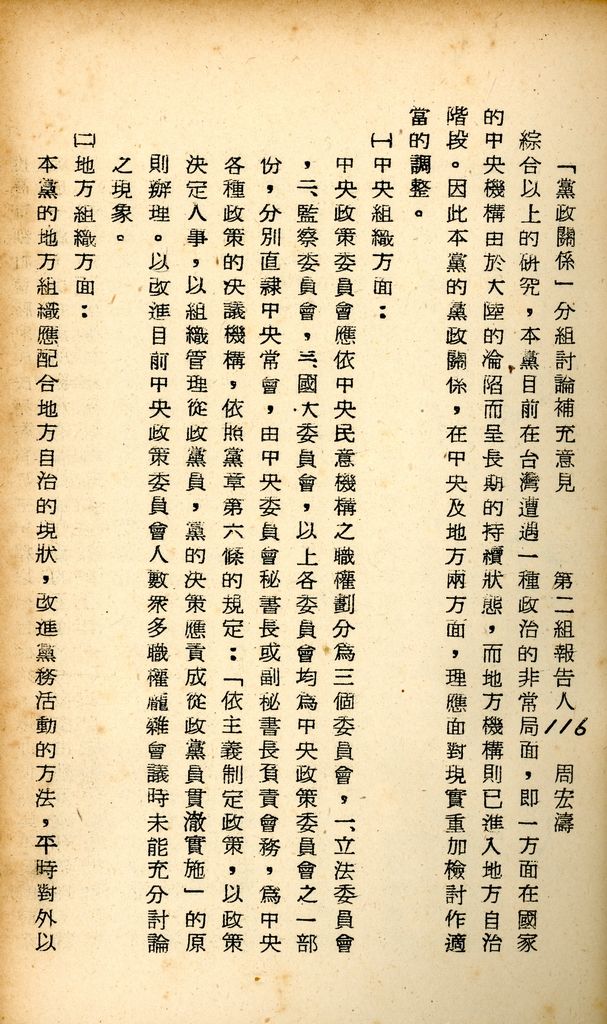 「黨政關係」分組討論補充意見　　第二組報告人　周宏濤
116
綜合以上的研究，本黨目前在台灣遭遇一種政治的非常局面，即一方面在國家
的中央機構由於大陸的淪陷而呈長期的持續狀態，而地方機構則已進入地方自治
階段。因此本黨的黨政關係，在中央及地方兩方面，理應面對現實重加檢討作適
當的調整。
㈠中央組織方面：
中央政策委員會應依中央民意機構之職權劃分為三個委員會，一、立法委員會
，二、監察委員會，三、國大委員會，以上各委員會均為中央政策委員會之一部
份，分別直隸中央常會，由中央委員會秘書長或副秘書長負責會務，為中央
各種政策的決議機構，依照黨章第六條的規定：「依主義制定政策，以政策
決定人事，以組織管理從政黨員，黨的決策應責成從政黨員貫澈實施」的原
則辦理。以改進目前中央政策委員會人數眾多職權龐雜會議時未能充分討論
之現象。
㈡地方組織方面：
本黨的地方組織應配合地方自治的現狀，改進黨務活動的方法，平時對外以